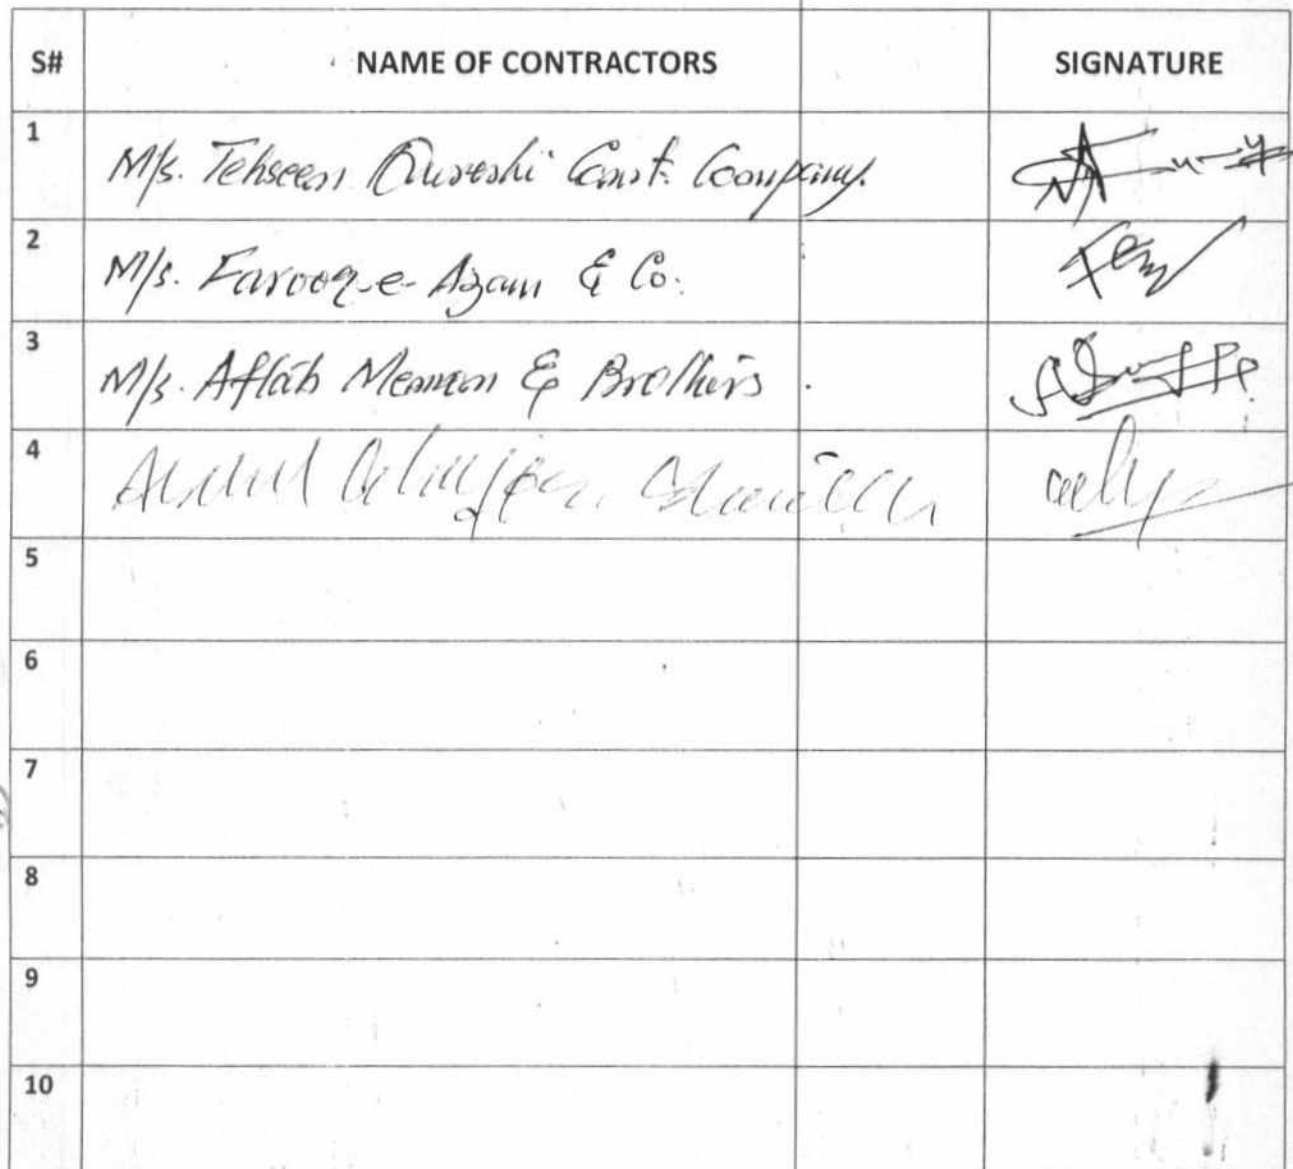 S# NAME OF CONTRACTORS SIGNATURE
1 M/s. Tehseen Qureshi Const. Company.
2 M/s. Farooq-e-Azam & Co.
3 M/s. Aftab Memon & Brothers
4 Abdul
5
6
7
8
9
10